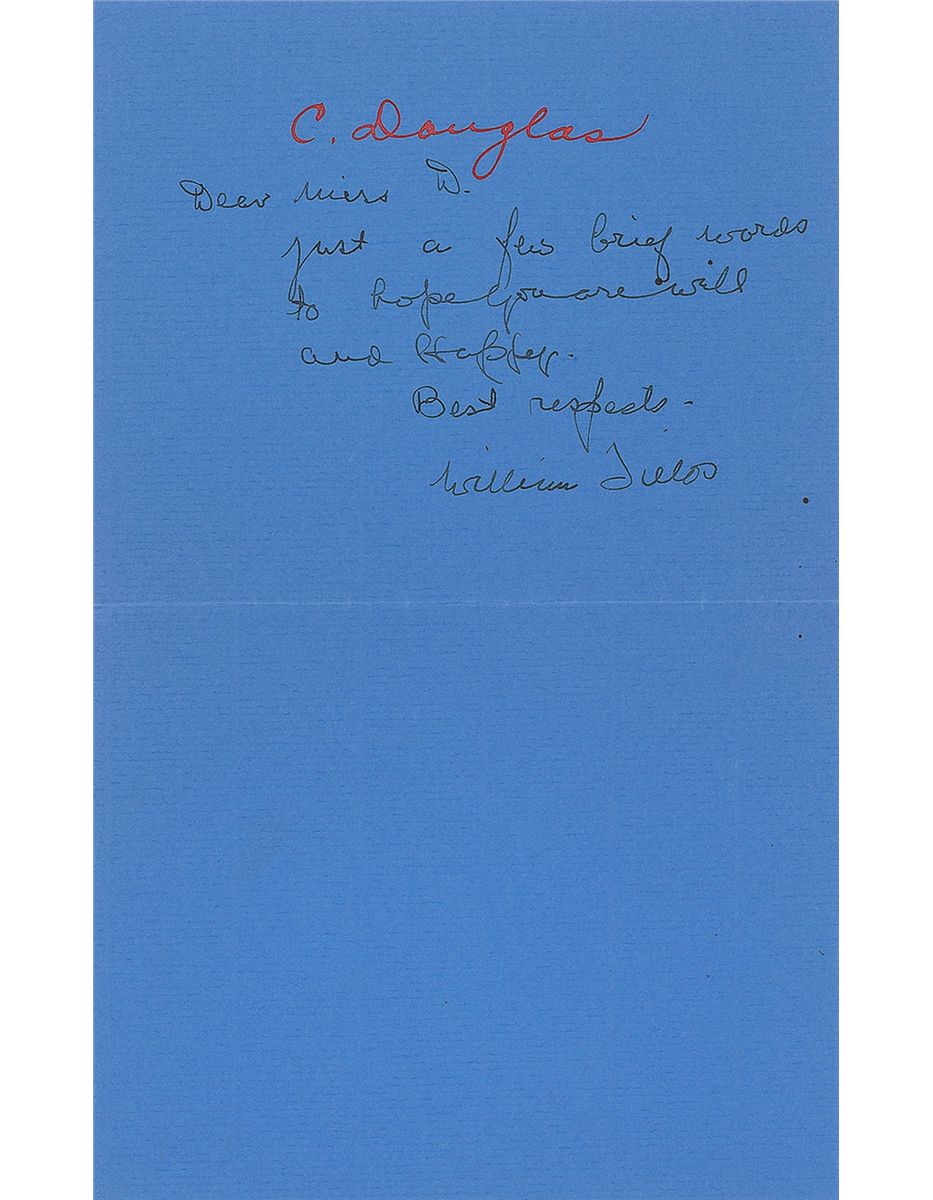 C. Douglas
Dear Miss D.
just a few brief words
to hope you are well
and Happy.
Best respects -
William